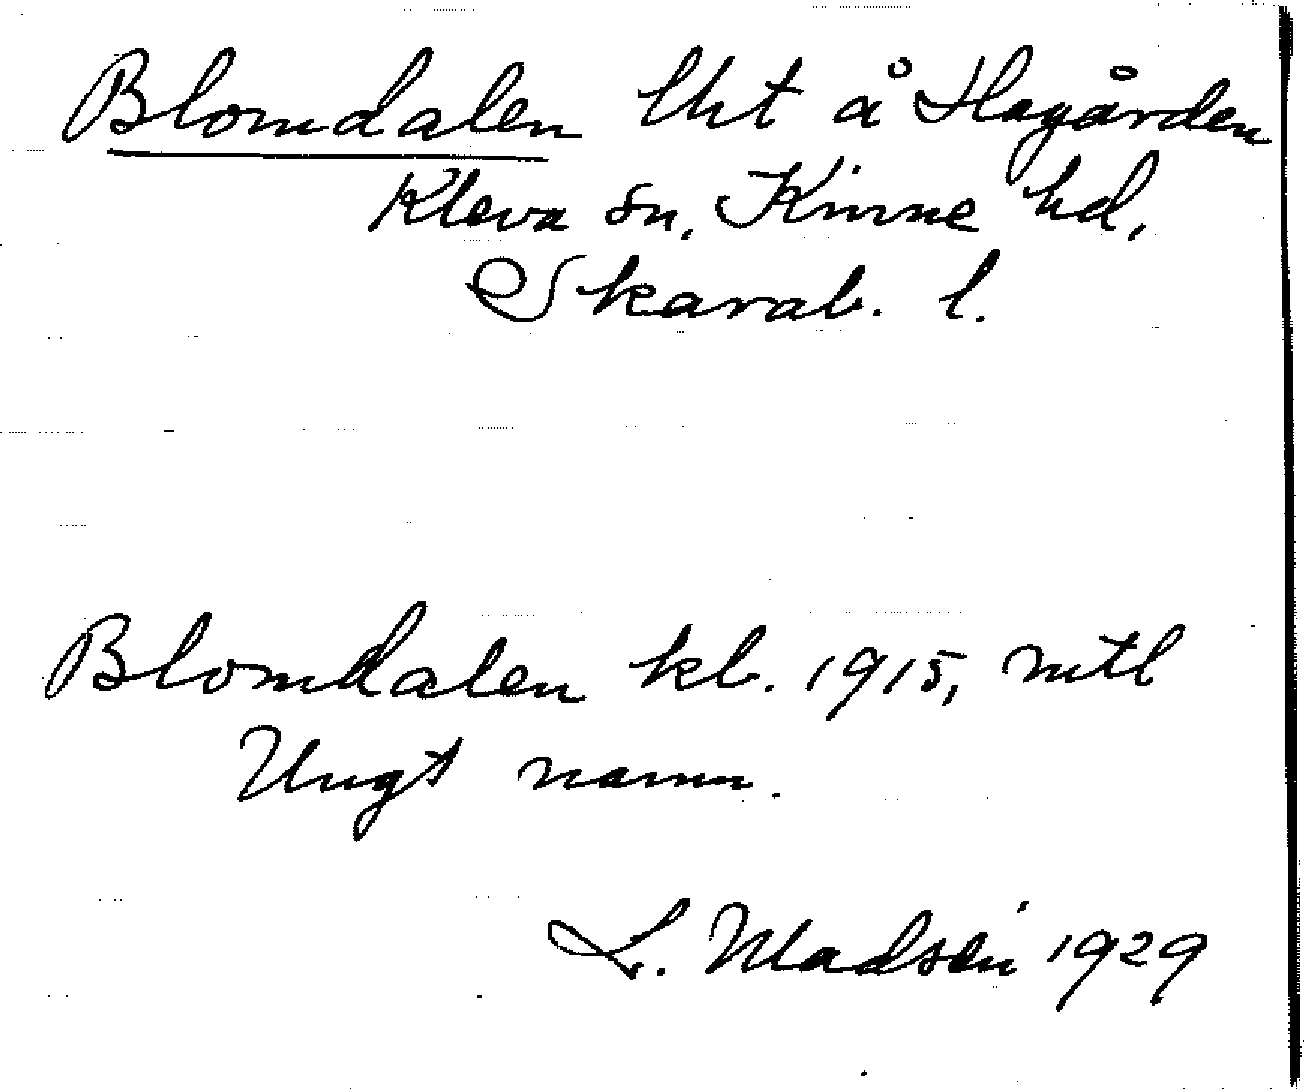 Blomdalen lht å Hagården
Kleva sn, Kinne hd,
Skarab. l.
Blomdalen kb. 1915, mtl
Ungt namn.
L. Madsén 1929